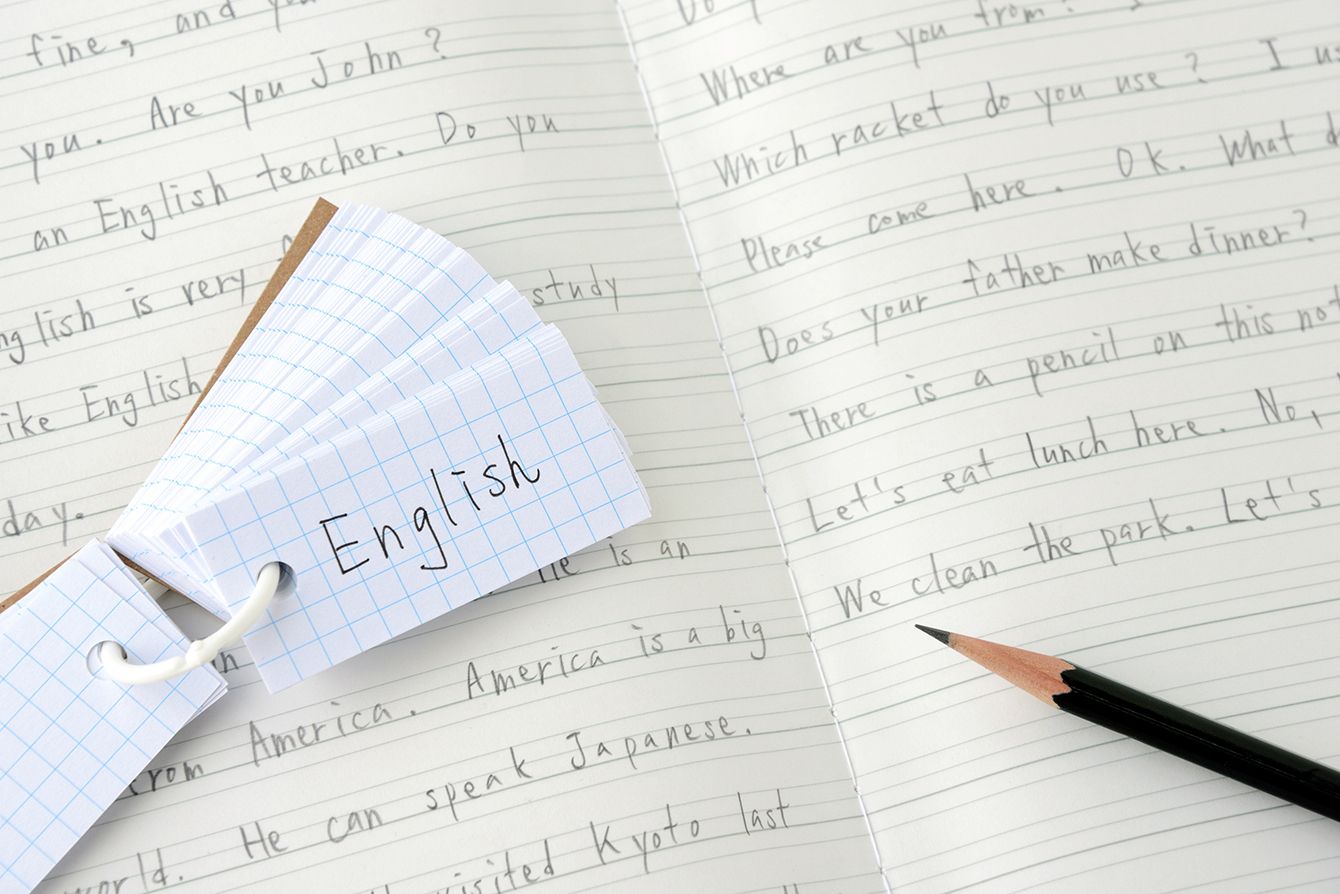 fine, and you
you. Are you John?
an English teacher. Do you
English is very
study
like English
day.
English
He is an
in
from America. America is a big
world. He can speak Japanese.
visited Kyoto last
Do
Where are you from?
Which racket do you use? I us
Please come here. Ok. What d
Does your father make dinner?
There is a pencil on this not
Let's eat lunch here. No,
We clean the park. Let's